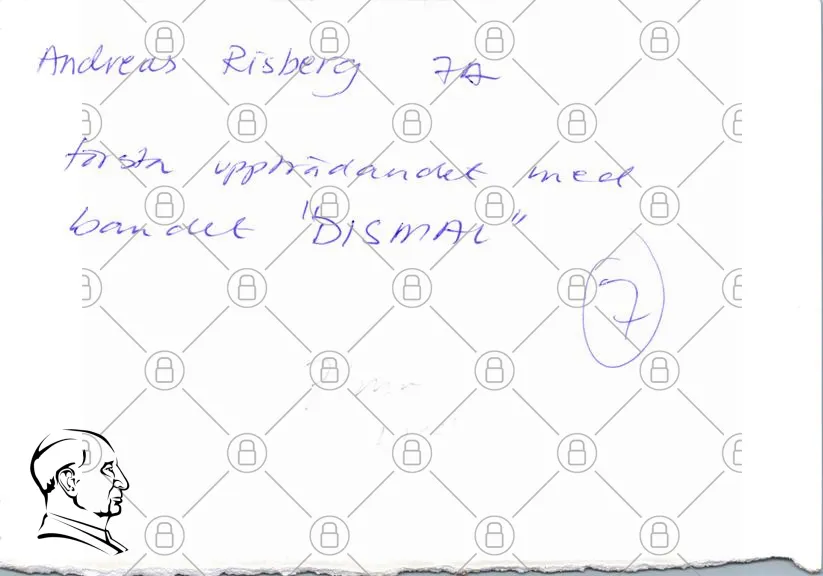 Andreas Risberg 7A
första uppträdandet med
bandet "DISMAL"
7